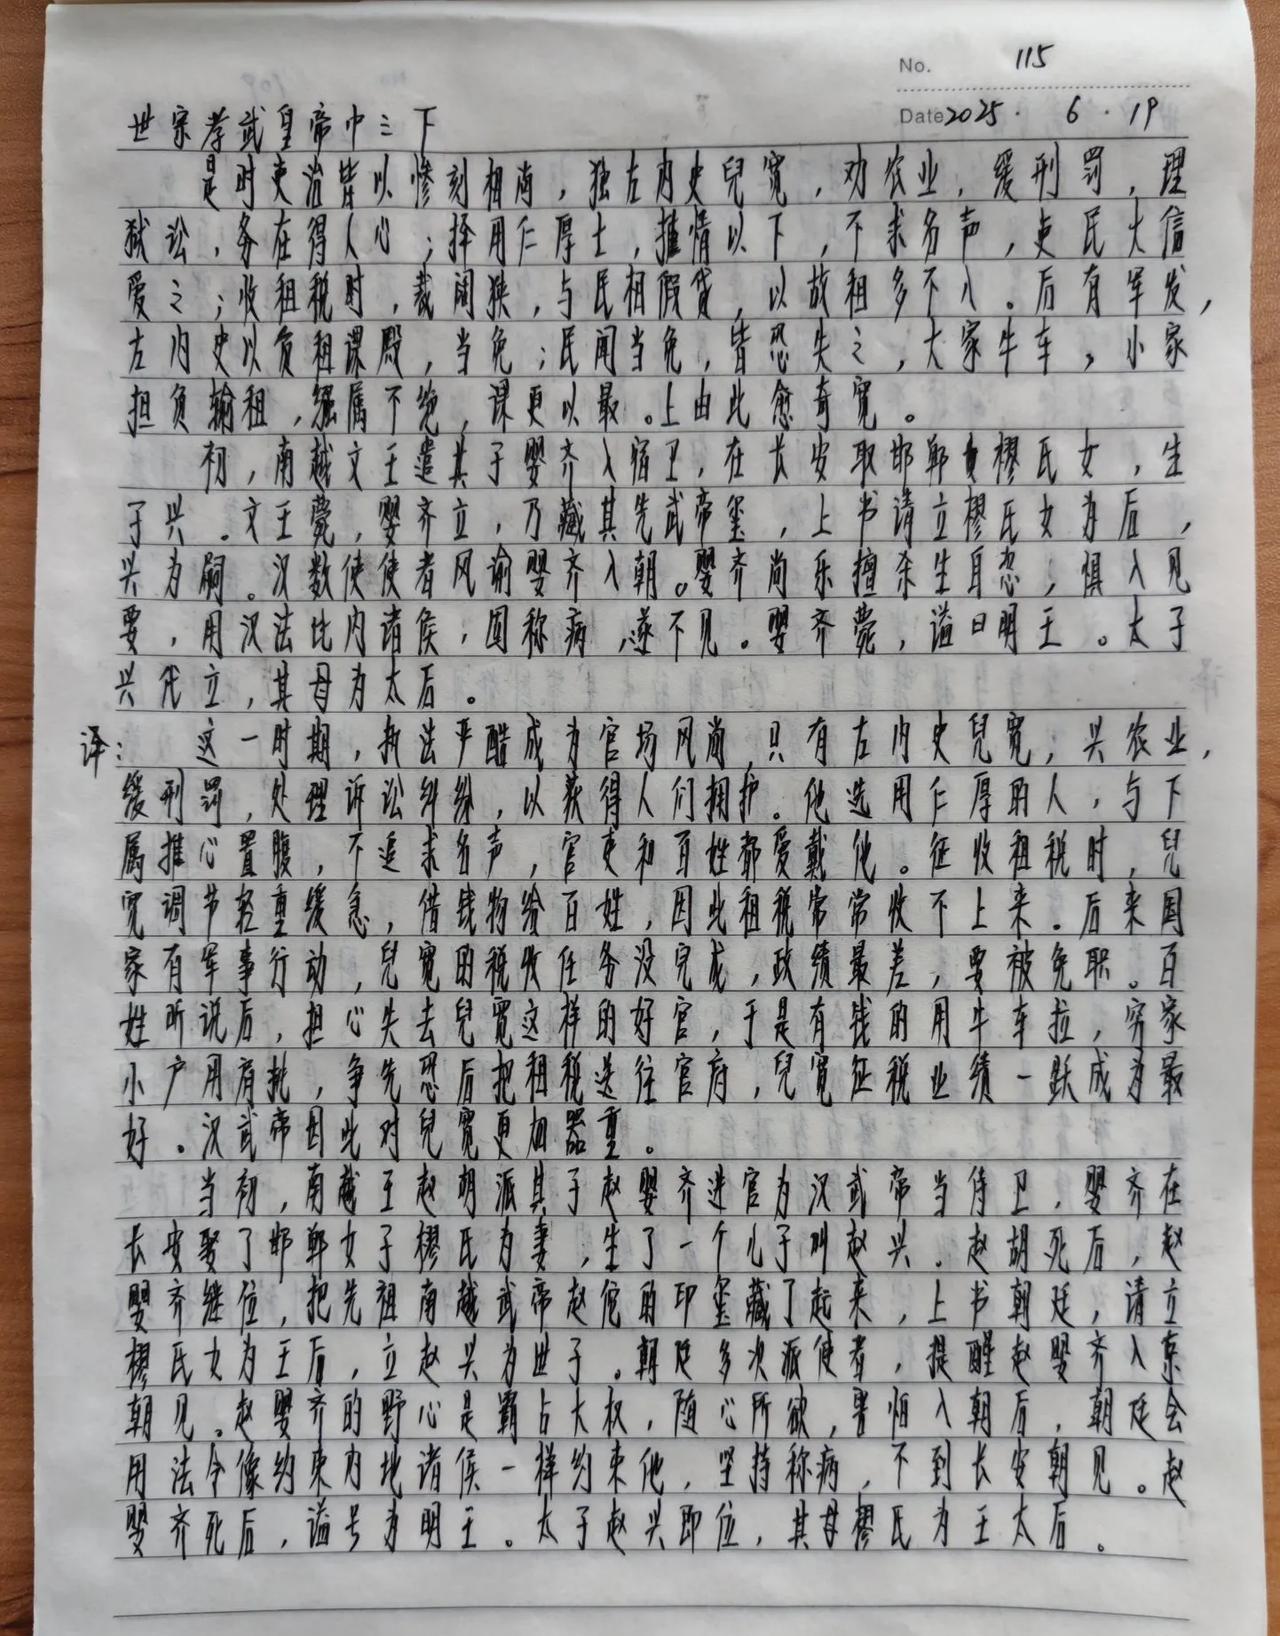 No. 115
Date 2025 · 6 · 19
世宗孝武皇帝中之下
是时吏治皆以惨刻相尚，独左内史兒宽，劝农业，缓刑罚，理
狱讼，务在得人心；择用仁厚士，推情以下，不求名声，吏民大信
爱之；收租税时，裁阔狭，与民相假贷，以故租多不入。后有军发，
左内史以负租课殿，当免；民闻当免，皆恐失之，大家牛车，小家
担负输租，繦属不绝，课更以最。上由此愈奇宽。
初，南越文王遣其子婴齐入宿卫，在长安取邯郸樛氏女，生
子兴。文王薨，婴齐立，乃藏其先武帝玺，上书请立樛氏女为后，
兴为嗣。汉数使使者风谕婴齐入朝。婴齐尚乐擅杀生自恣，惧入见
要，用汉法比内诸侯，固称病，遂不见。婴齐薨，谥曰明王。太子
兴代立，其母为太后。
译：这一时期，执法严酷成为官场风尚，只有左内史兒宽，兴农业，
缓刑罚，处理诉讼纠纷，以获得人们拥护。他选用仁厚的人，与下
属推心置腹，不追求名声，官吏和百姓都爱戴他。征收租税时，兒
宽调节轻重缓急，借钱物给百姓，因此租税常常收不上来。后来国
家有军事行动，兒宽的税收任务没完成，政绩最差，要被免职。百
姓听说后，担心失去兒宽这样的好官，于是有钱的用牛车拉，穷家
小户用肩挑，争先恐后把租税送往官府，兒宽征税业绩一跃成为最
好。汉武帝因此对兒宽更加器重。
当初，南越王赵胡派其子赵婴齐进宫为汉武帝当侍卫，婴齐在
长安娶了邯郸女子樛氏为妻，生了一个儿子叫赵兴。赵胡死后，赵
婴齐继位，把先祖南越武帝赵佗的印玺藏了起来，上书朝廷，请立
樛氏女为王后，立赵兴为世子。朝廷多次派使者，提醒赵婴齐入京
朝见。赵婴齐的野心是霸占大权，随心所欲，害怕入朝后，朝廷会
用法令像约束内地诸侯一样约束他，坚持称病，不到长安朝见。赵
婴齐死后，谥号为明王。太子赵兴即位，其母樛氏为王太后。